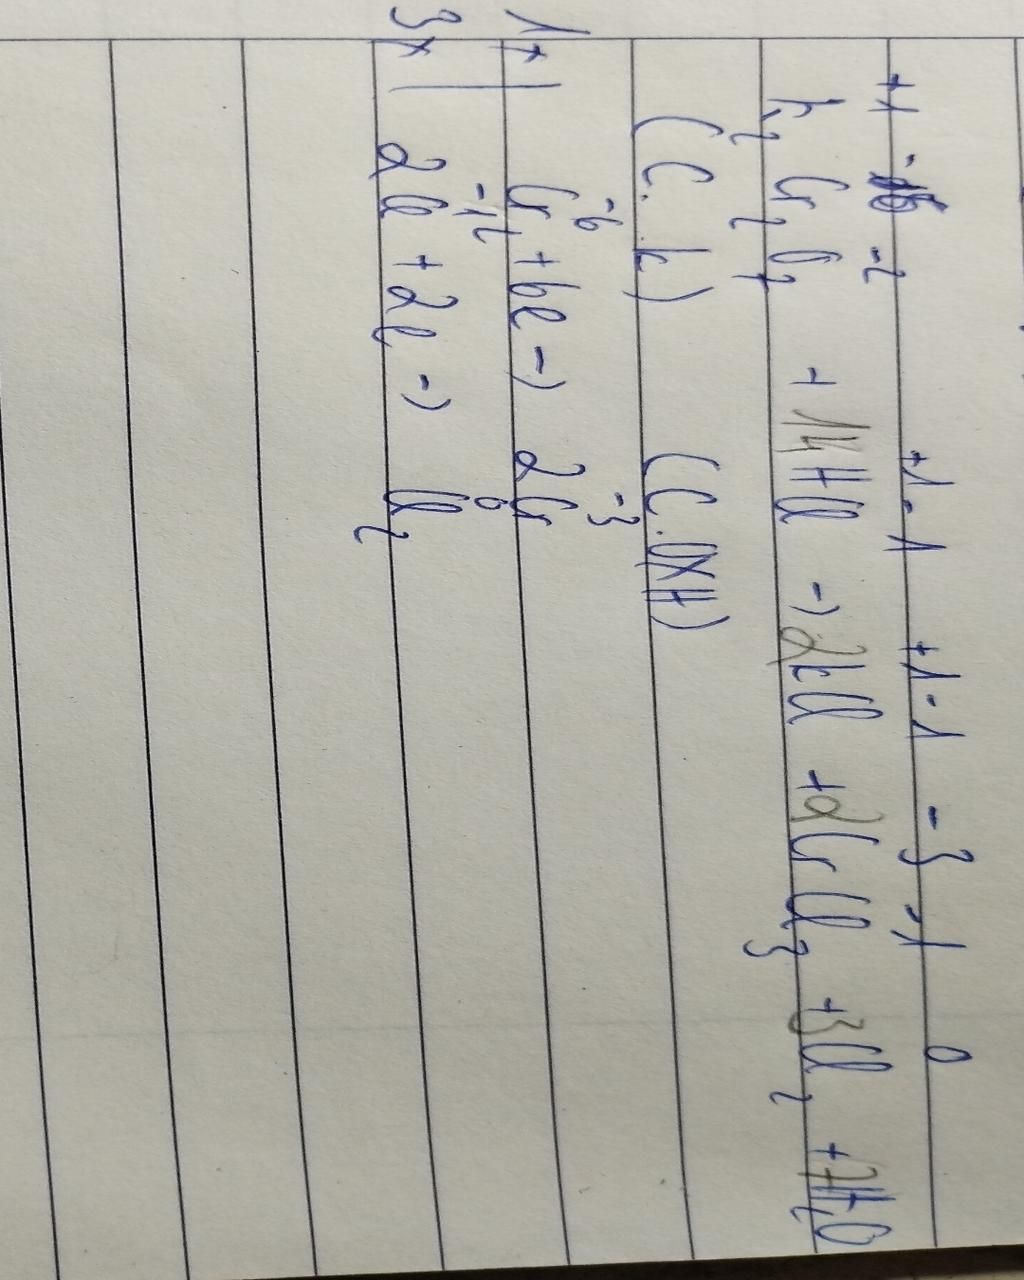 +1 -6 -2 +1-1 +1-1 -3 -1 0
K₂Cr₂O₇ + 14HCl → 2KCl + 2CrCl₃ + 3Cl₂ + 7H₂O
(C.k) (C.OXH)
1x | Cr₂⁻⁶ + 6e → 2Cr⁻³
3x | 2Cl⁻¹ + 2e → Cl₂⁰